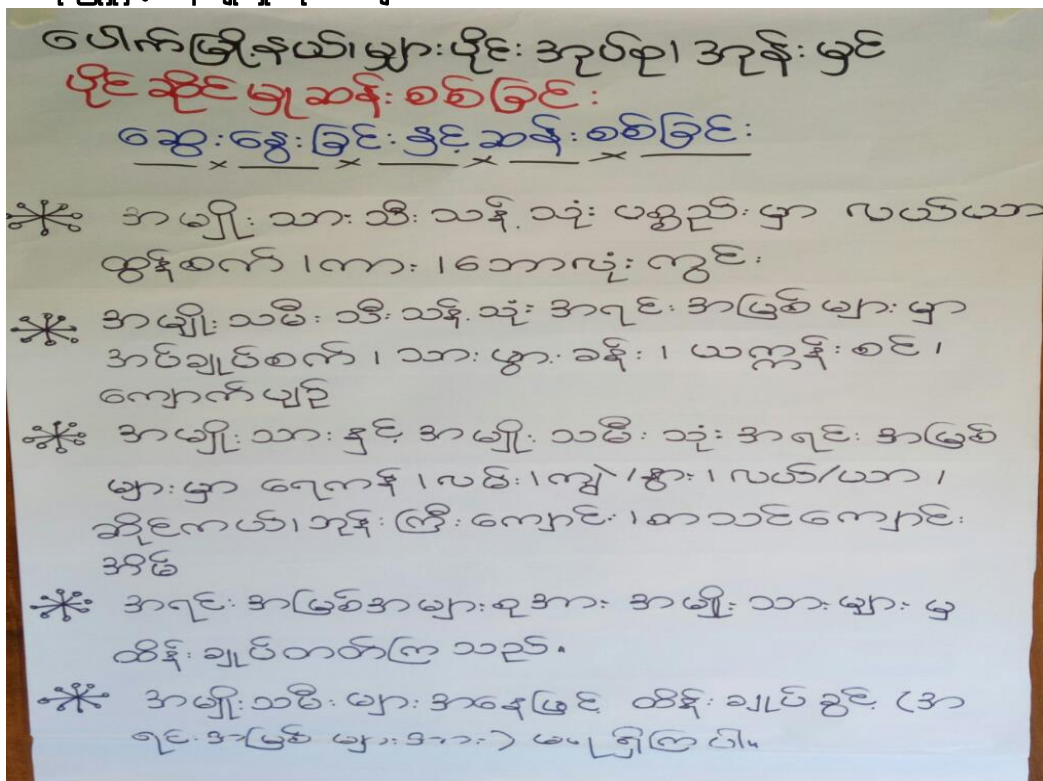 ပေါက်မြို့နယ်၊ မျှားပိုင်းအုပ်စု၊ အုန်းမှင်
ပိုင်ဆိုင်မှုဆန်းစစ်ခြင်း
ဆွေးနွေးခြင်းနှင့်ဆန်းစစ်ခြင်း
အမျိုးသားသီးသန့်သုံးပစ္စည်းမှာ လယ်ယာ
ထွန်စက်၊ ကား၊ ဘောလုံးကွင်း
အမျိုးသမီးသီးသန့်သုံးအရင်းအမြစ်များမှာ
အပ်ချုပ်စက်၊ သားဖွားခန်း၊ ယက္ကန်းစင်၊
ကျောက်ပျဉ်
အမျိုးသားနှင့်အမျိုးသမီးသုံးအရင်းအမြစ်
များမှာ ရေကန်၊ လမ်း၊ ကျွဲ/နွား၊ လယ်/ယာ၊
ဆိုင်ကယ်၊ ဘုန်းကြီးကျောင်း၊ စာသင်ကျောင်း
အိမ်
အရင်းအမြစ်အများစုအား အမျိုးသားများမှ
ထိန်းချုပ်တတ်ကြသည်။
အမျိုးသမီးများအနေဖြင့် ထိန်းချုပ်ခွင့် (အ
ရင်းအမြစ်များအား) မရရှိကြပါ။